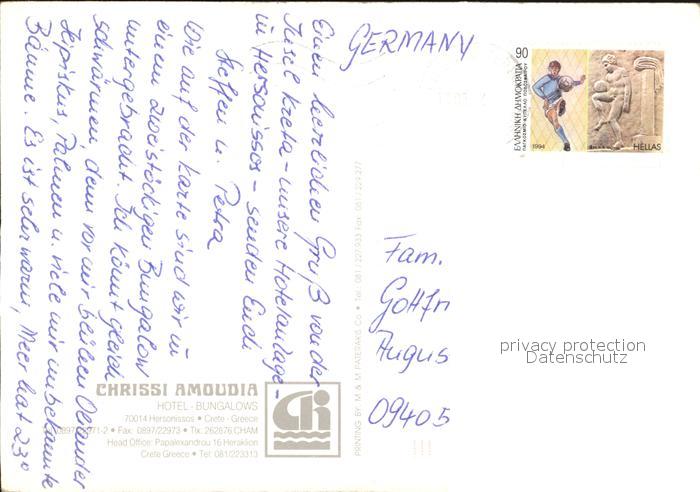 Einen herzlichen Gruß von der
Insel Kreta - unsere Hotelanlage -
in Hersonissos - senden Euch
Steffen u. Petra
Wie auf der Karte sind wir in
einem zweistöckigen Bungalow
untergebracht. Ich könnt gleich
schwärmen denn vor mir blühen Oleander
Hipiskus, Palmen u. viele mir unbekannte
Bäume. Es ist sehr warm, Meer hat 23°
GERMANY
90
ΕΛΛΗΝΙΚΗ ΔΗΜΟΚΡΑΤΙΑ
ΠΑΓΚΟΣΜΙΟ ΚΥΠΕΛΛΟ ΠΟΔΟΣΦΑΙΡΟΥ
1994
HELLAS
Fam.
Augus
09405
privacy protection
Datenschutz
CHRISSI AMOUDIA
HOTEL - BUNGALOWS
70014 Hersonissos • Crete - Greece
0897/22971-2 • Fax: 0897/22973 • Tlx: 262876 CHAM
Head Office: Papalexandrou 16 Heraklion
Crete Greece • Tel: 081/223313
PRINTING BY M & M PATERAKIS Co • Tel.: 081/227-933 Fax: 081/229-277